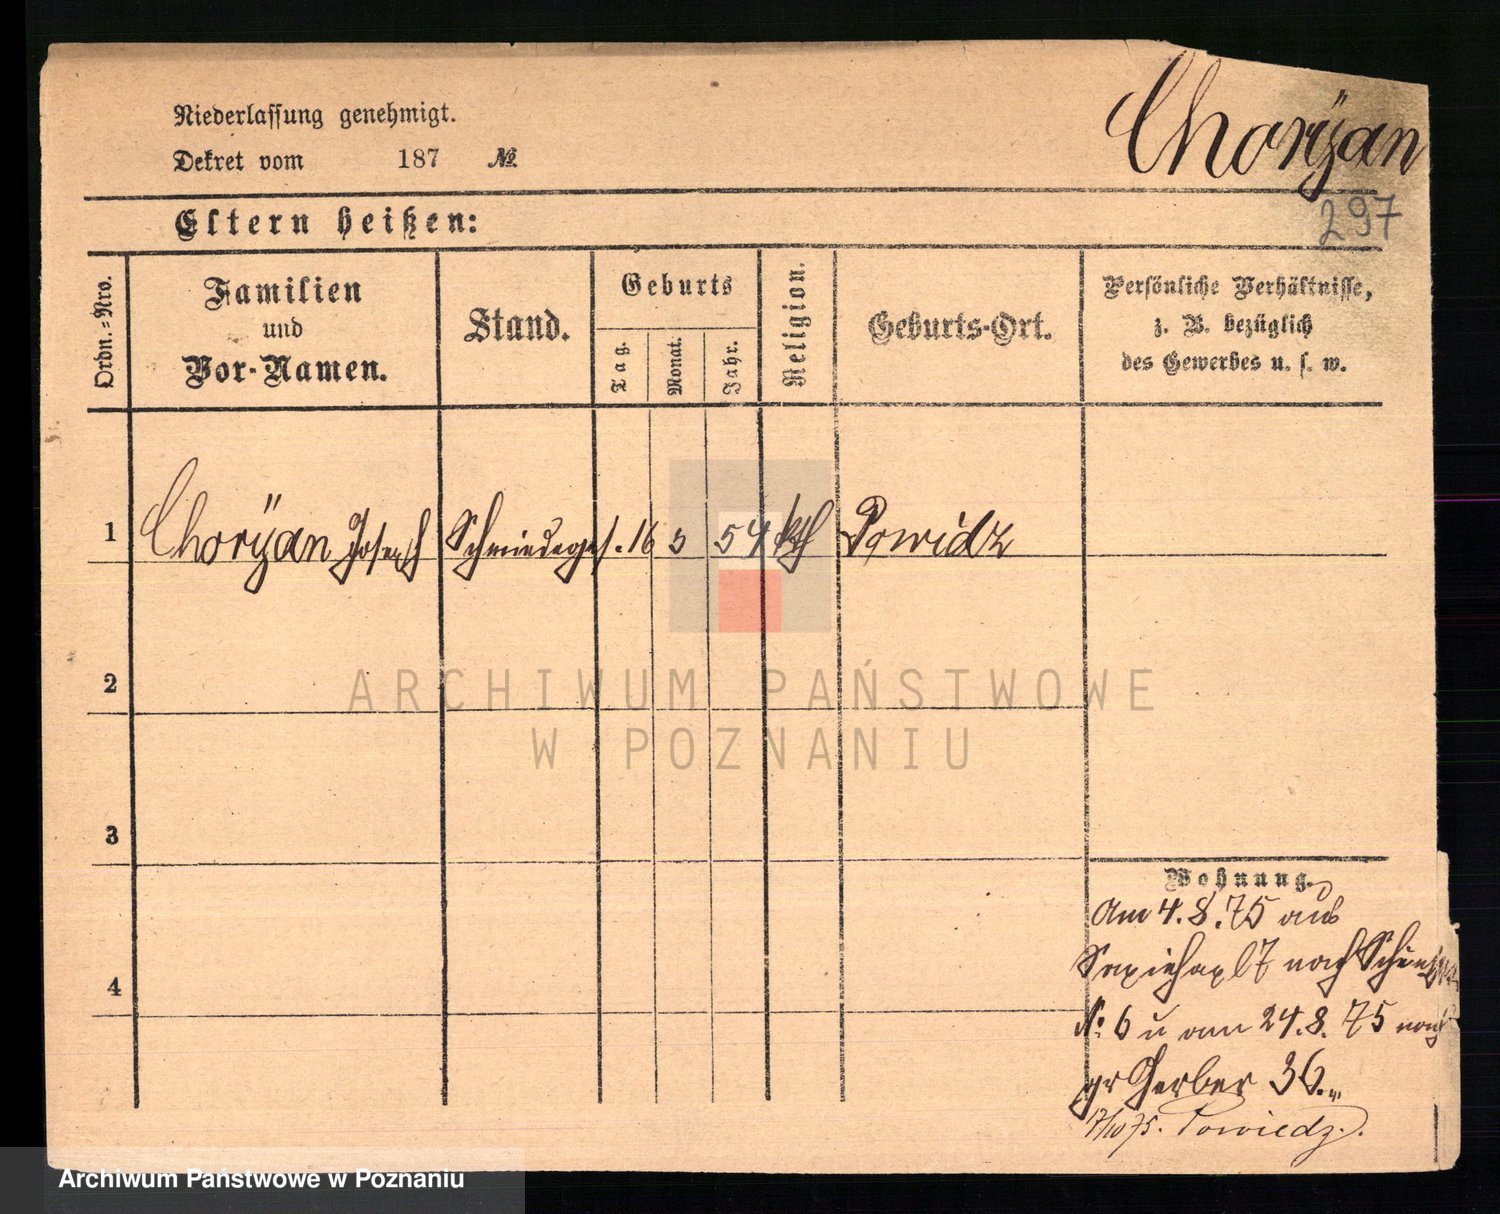 Niederlassung genehmigt.
Dekret vom 187 №
Choryan
297
Eltern heißen:
Ordn.=Nro.
Familien und Vor-Namen.
Stand.
Geburts
Tag.
Monat.
Jahr.
Religion.
Geburts-Ort.
Persönliche Verhältnisse,
z. B. bezüglich
des Gewerbes u. s. w.
1 Chorÿan Joseph Schmiedeges. 16 5 54 kth Powidz
2
3
4
Wohnung.
Am 4.8.75 aus
17 nach
No 6 u am 24.8.75 nach
gr Gerber 36.
17/10 75. Powiedz.
ARCHIWUM PAŃSTWOWE
W POZNANIU
Archiwum Państwowe w Poznaniu